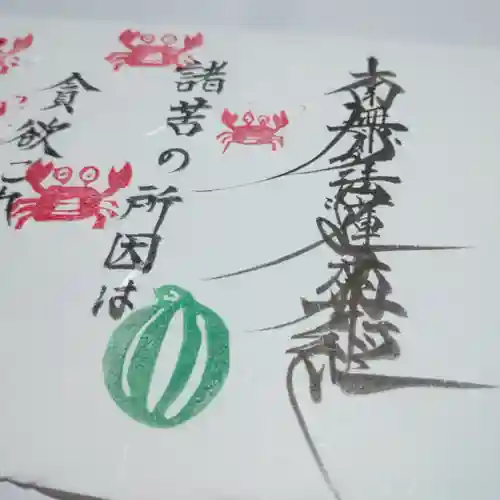 南無妙法蓮華経
諸苦の所因は
貪欲これ